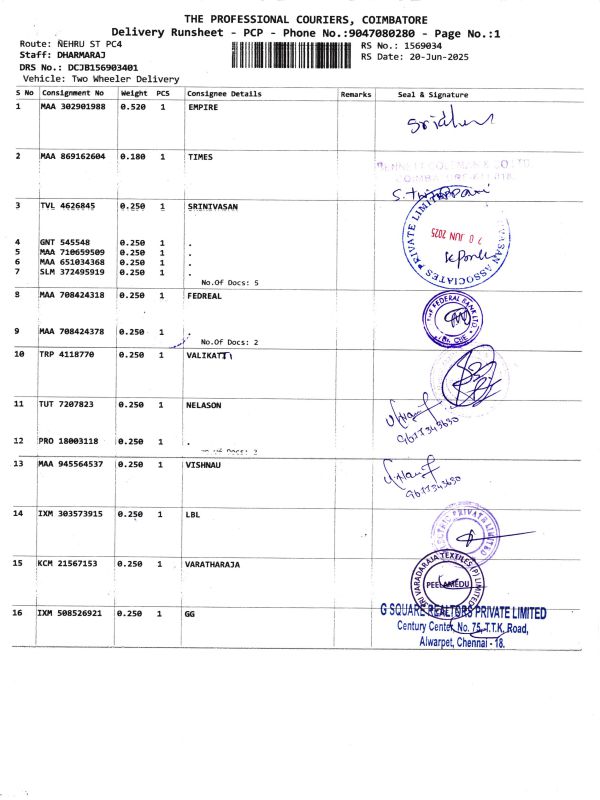 THE PROFESSIONAL COURIERS, COIMBATORE
Delivery Runsheet - PCP - Phone No.:9047080280 - Page No.:1
Route: NEHRU ST PC4
RS No.: 1569034
Staff: DHARMARAJ
RS Date: 20-Jun-2025
DRS No.: DCJB156903401
Vehicle: Two Wheeler Delivery
S No Consignment No Weight PCS Consignee Details Remarks Seal & Signature
1 MAA 302901988 0.520 1 EMPIRE
Sridhar
2 MAA 869162604 0.180 1 TIMES
3 TVL 4626845 0.250 1 SRINIVASAN
PRIVATE LIMITED ASSOCIATES
20 JUN 2025
4 GNT 545548 0.250 1 .
5 MAA 710659509 0.250 1 .
6 MAA 651034368 0.250 1 .
7 SLM 372495919 0.250 1 .
No.Of Docs: 5
8 MAA 708424318 0.250 1 FEDREAL
THE FEDERAL BANK LTD
9 MAA 708424378 0.250 1 .
No.Of Docs: 2
10 TRP 4118770 0.250 1 VALIKATTI
11 TUT 7207823 0.250 1 NELASON
9677343630
12 PRO 18003118 0.250 1 .
No.Of Docs: 2
13 MAA 945564537 0.250 1 VISHNAU
9677343630
14 IXM 303573915 0.250 1 LBL
PRIVATE LIMITED
15 KCM 21567153 0.250 1 VARATHARAJA
SRI VARADARAJA TEXTILES (P) LIMITED
PEELAMEDU
16 IXM 508526921 0.250 1 GG
G SQUARE REALTORS PRIVATE LIMITED
Century Center, No. 75, T.T.K. Road,
Alwarpet, Chennai - 18.